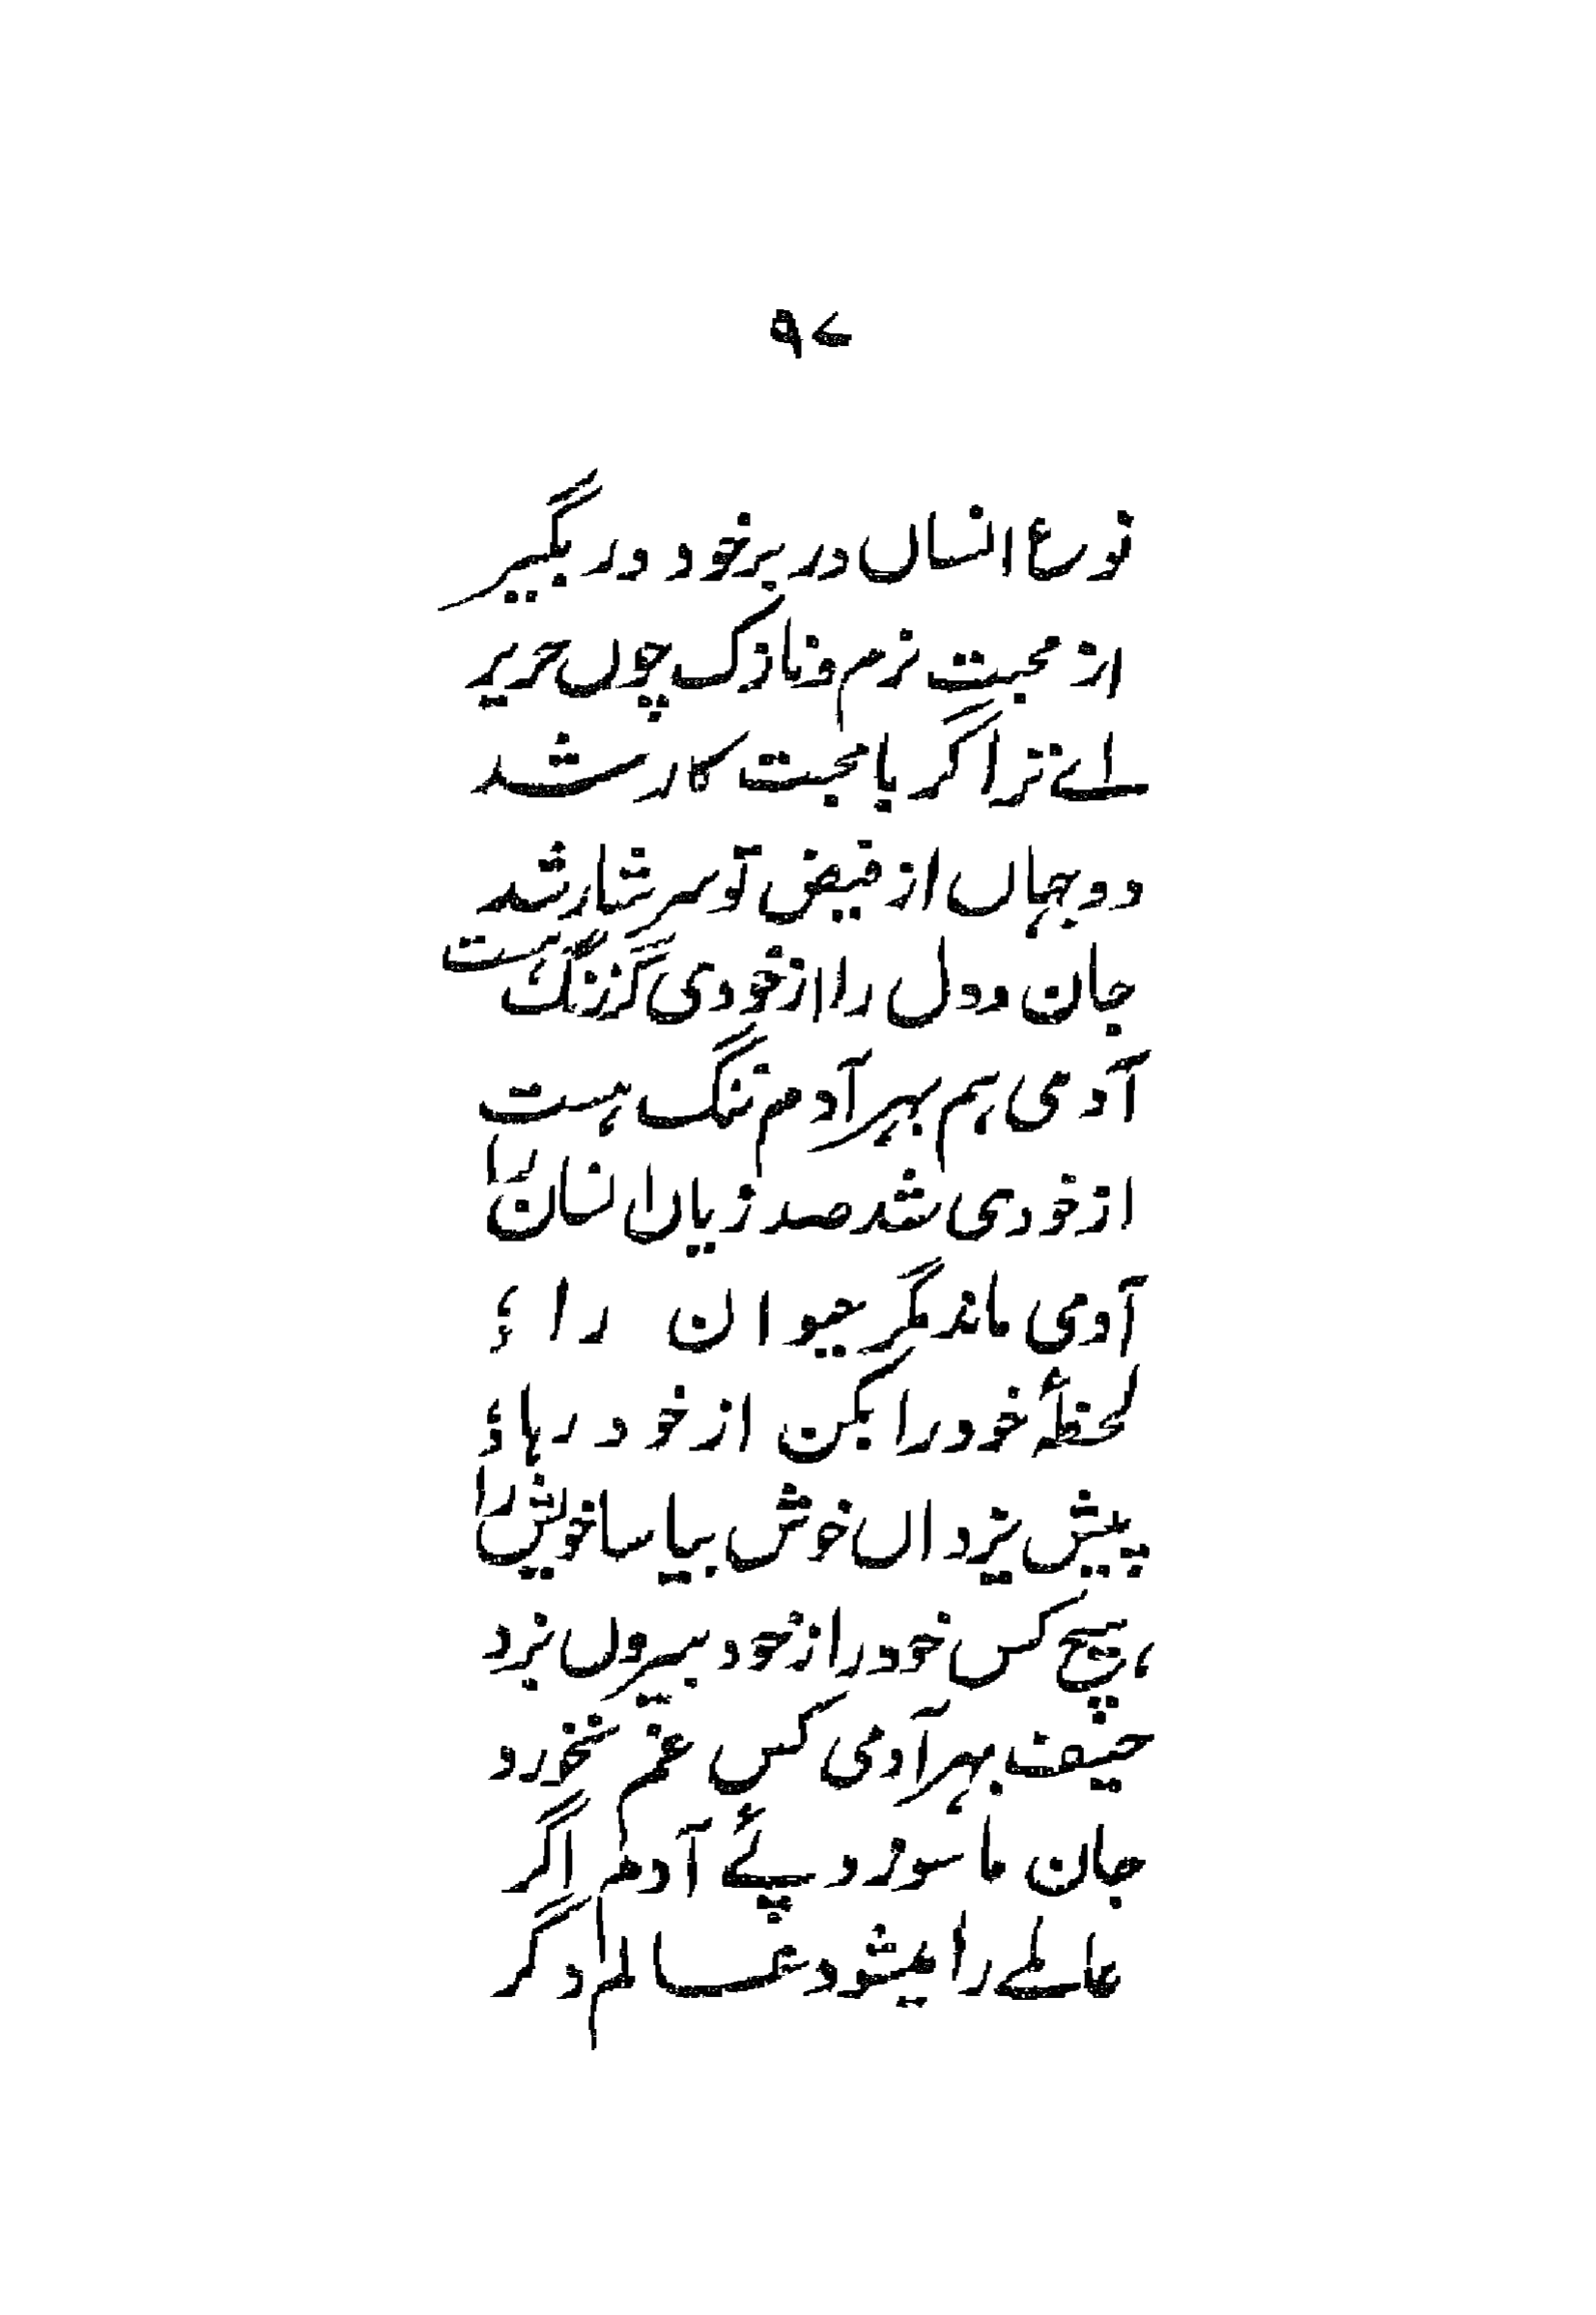 ۹۷
نوع انساں در بر خود در بگیر
از محبت نرم و نازک چوں حریر
اے ترا گر با محبت کار شد
دو جہاں از فیض تو سرشار شد
جان و دل را از خودی گر زنگ ہست
آدمی ہم بہر آدم ننگ ہست
از خودی شد صد زیاں انسان را
آدمی ماند مگر حیوان را ؛
لحظۂ خود را بکن از خود رہا ؛
پیش یزداں خوش بیاسا خویش را
ہیچ کس خود را ز خود بیروں نبرد
حیف بہر آدمی کس غم نخورد
جان ما سوزد پئے آدم اگر
عالمے را میشود عالم دگر